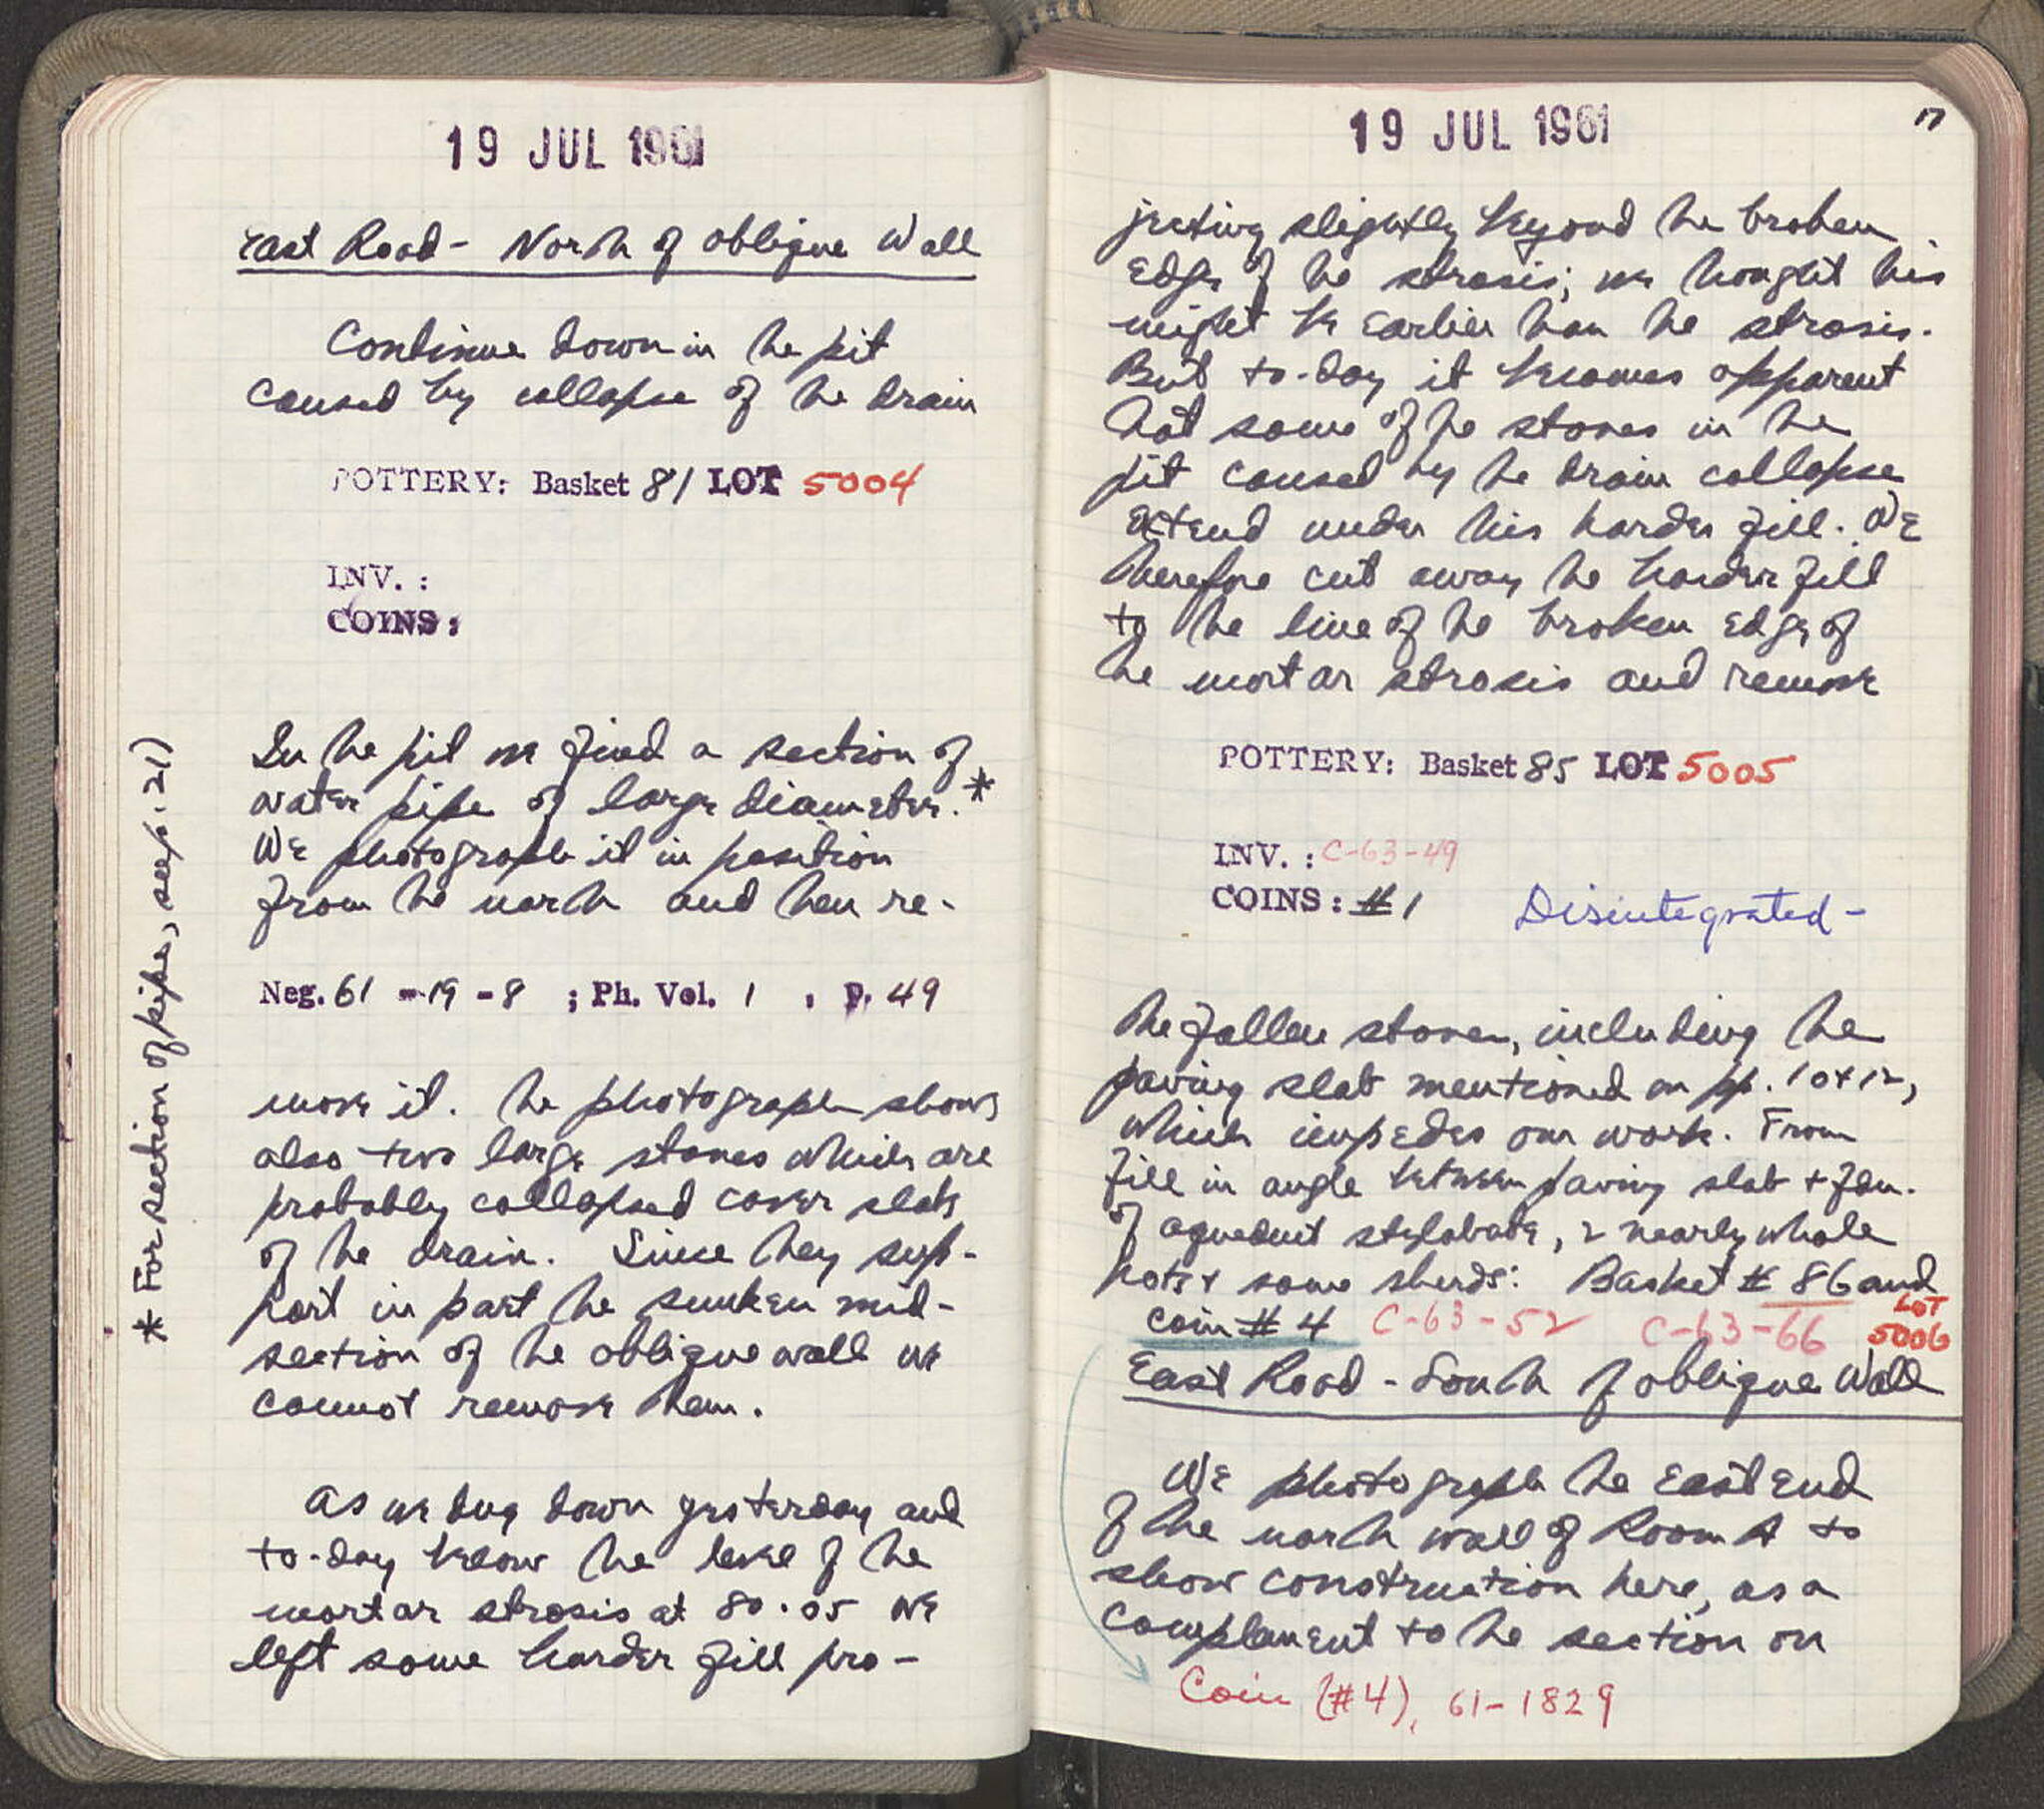 19 JUL 1961
East Road - North of oblique Wall
Continue down in the pit
caused by collapse of the drain
POTTERY: Basket 81 LOT 5004
INV. :
COINS :
In the pit we find a section of
water pipe of large diameter.*
We photograph it in position
from the north and then re-
Neg. 61 - 19 - 8 ; Ph. Vol. 1 , p. 49
move it. The photograph shows
also two large stones which are
probably collapsed cover slabs
of the drain. Since they sup-
port in part the sunken mid-
section of the oblique wall we
cannot remove them.
As we dug down yesterday and
to-day below the level of the
mortar strosis at 80.05 we
left some harder fill pro-
* For section of pipe, see p. 21)
19 JUL 1961
17
jecting slightly beyond the broken
edge of the strosis; we thought this
might be earlier than the strosis.
But to-day it becomes apparent
that some of the stones in the
pit caused by the drain collapse
extend under this harder fill. We
therefore cut away the harder fill
to the line of the broken edge of
the mortar strosis and remove
POTTERY: Basket 85 LOT 5005
INV. : C-63-49
COINS : #1 Disintegrated -
the fallen stones, including the
paving slab mentioned on pp. 10+12,
which impedes our work. From
fill in angle between paving slab + fdn.
of aqueduct stylobate, 2 nearly whole
pots + some sherds: Basket # 86 and
LOT
coin # 4 C-63-52 C-63-66 5006
East Road - South of oblique Wall
We photograph the East End
of the north wall of Room A to
show construction here, as a
complement to the section on
Coin (#4), 61-1829